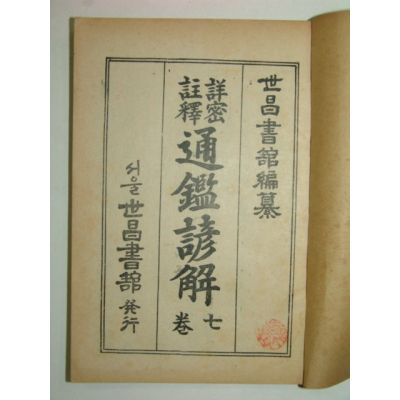 世昌書舘編纂
詳密
註釋
通鑑諺解
七
卷
서울 世昌書舘 発行